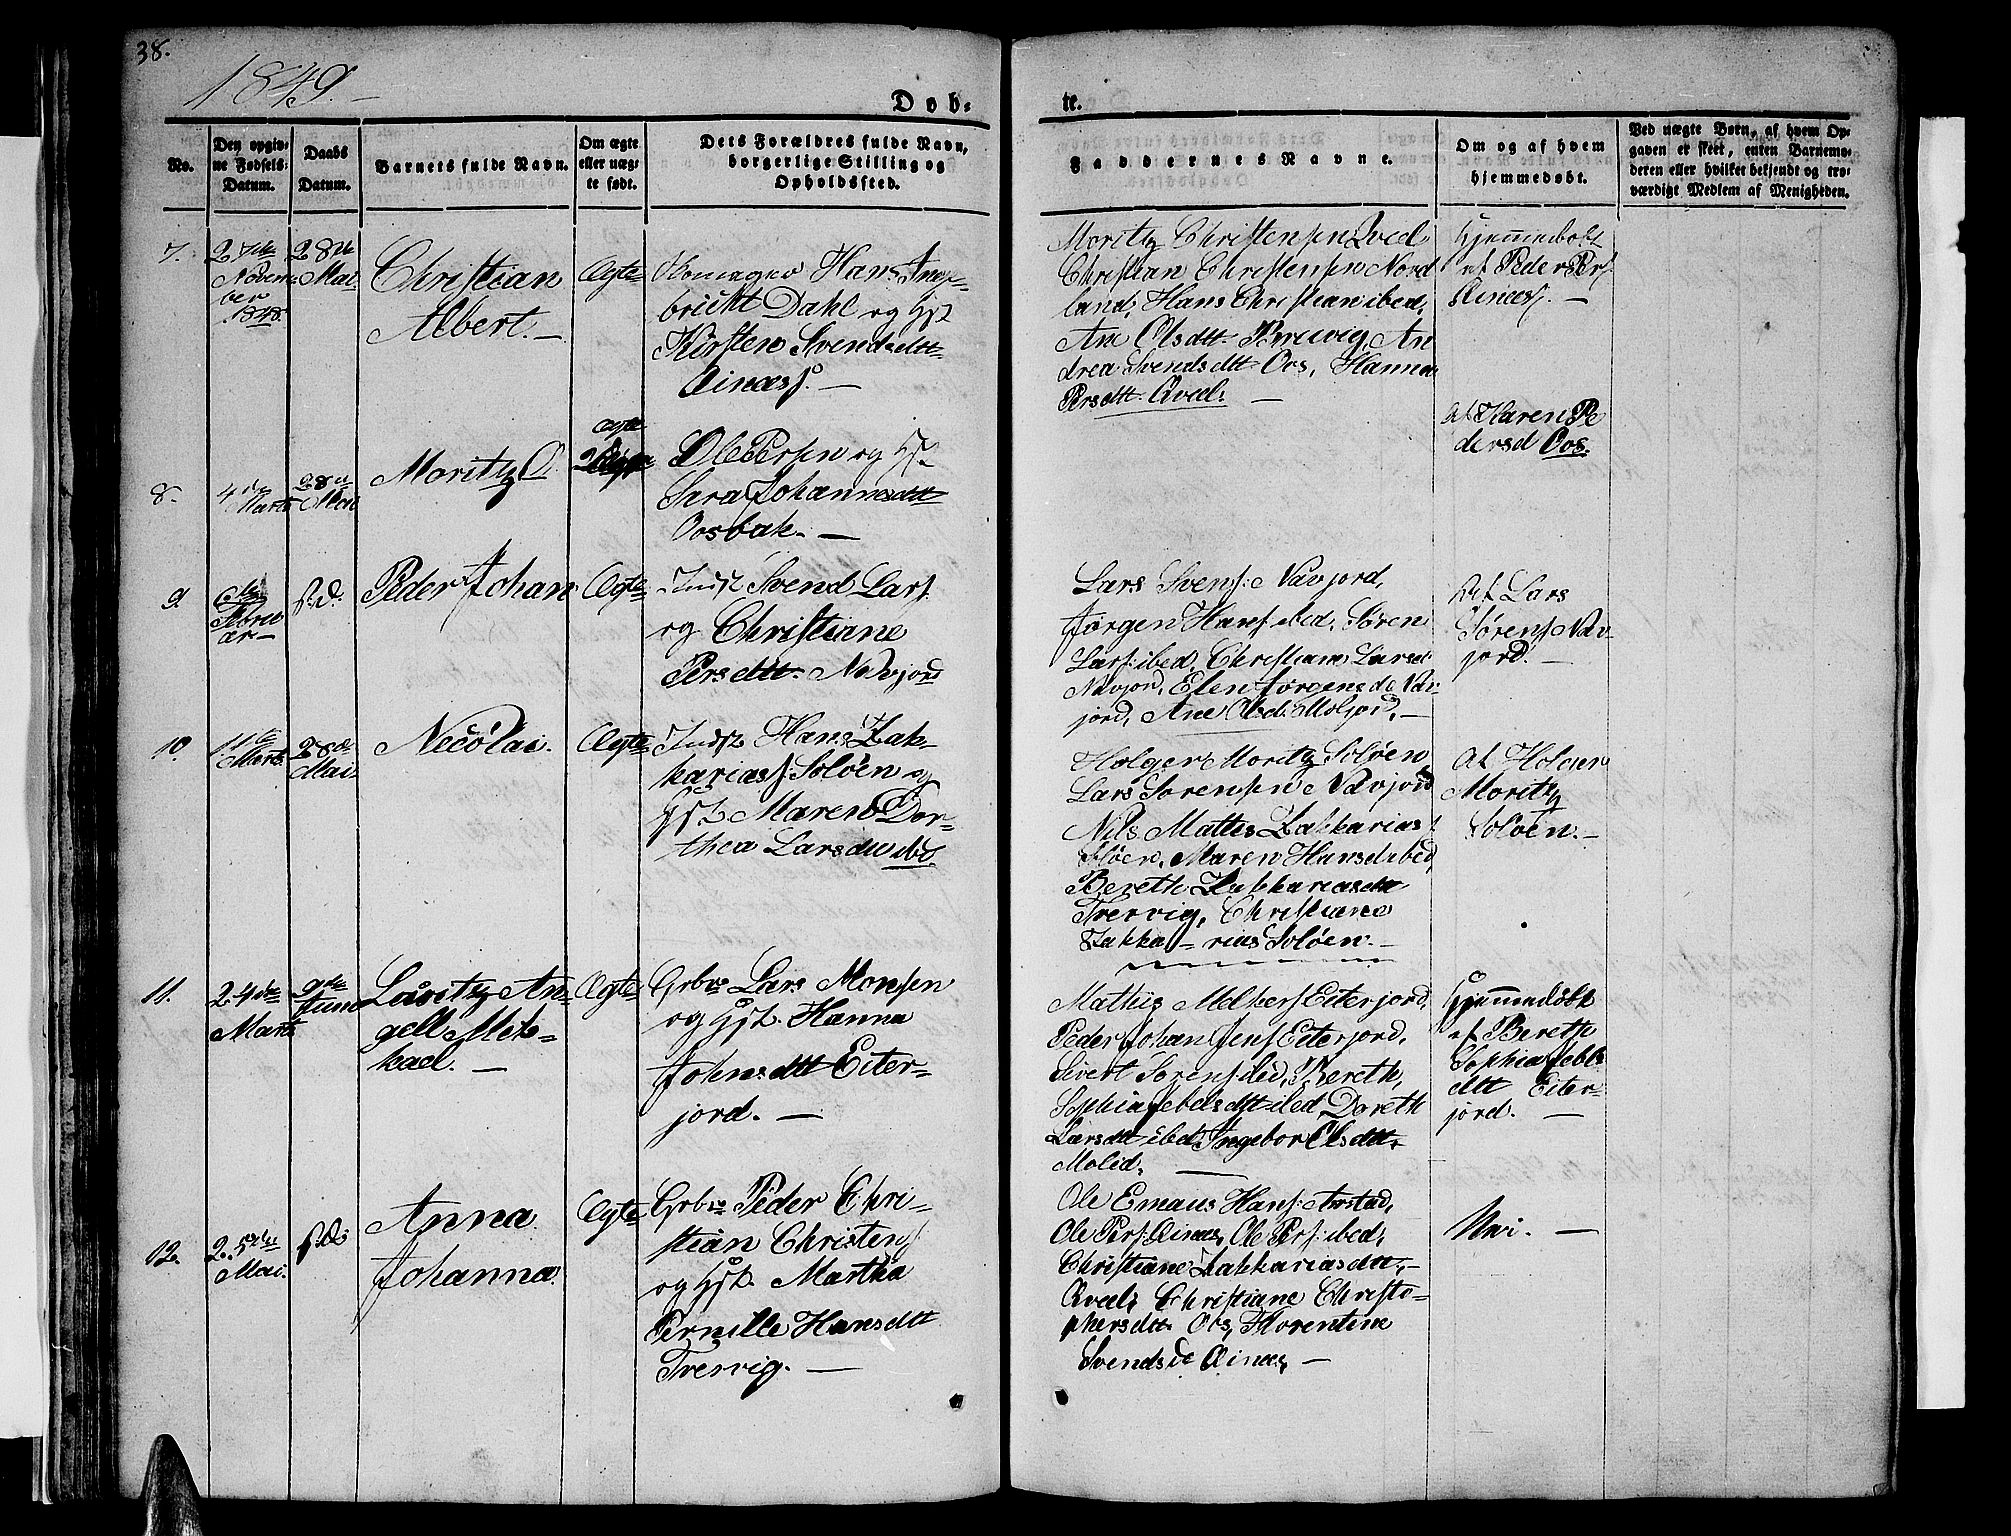 38.
1849.
Døb-
te.
No.
Den opgiv-
ne Fødsels-
Datum.
Daabs
Datum.
Barnets fulde Navn.
Om ægte
eller uæg-
te født.
Dets Forældres fulde Navn,
borgerlige Stilling og
Opholdssted.
Faddernes Navne.
Om og af hvem
hjemmedøbt.
Ved uægte Børn, af hvem Op-
gaven er skeet, enten Barnemo-
deren eller hvilket bekjendt og tro-
værdigt Medlem af Menigheden.
7.
27de
Novem-
ber
1848.
28de
Mai
Christian
Albert. —
Ægte
Hans Inge-
brickt Dahl og Hst
Kirsten Svendsdtt
Ainæss. —
Moritz Christensen Qved
Christian Christensen Nord
land, Hans Christian ibed,
Ane Olsdtt An
drea Svendsdtt Oos, Hanna
Persdtt Qved. —
Hjemmedøbt
af Peder Pers
Ainæss. —
8.
4de
Marts
28de
Mai
Moritz O.
Ægte
Ole Persen og Hst
Sara Johannesdtt
Oosbak. —
af Karen Pe
dersd Oos.
9.
Febru
ar —
s.d.
Peder Johan
Ægte
Indst Svend Lars.
og Christiane
Persdtt Navjord
Lars Svens. Navjord,
Jørgen Hans. ibed, Søren
Lars. ibed, Christiane Larsd
Navjord, Elen Jørgensd Nav-
jord, Ane Olsd. —
Af Lars
Sørens. Nav-
jord. —
10.
11te
Marts
28de
Mai.
Necolai.
Ægte
Indst Hans Zak-
karias. Soløen og
Hst. Maren Dor-
thea Larsdtt ibd.
Holger Moritz Soløen
Lars Sørensen Navjord
Nils Mattis Zakkarias.
Soløen, Maren Hansd ibed
Bereth Zakkariasdtt
Trervig, Christiane
Zakka-rias Soløen. —
Af Holger
Moritz
Soløen. —
11.
24de
Marts
9de
Juni
Lauritz An-
gell Mik-
kael. —
Ægte
Grbr Lars Monsen
og Hst. Hanna
Johnsdtt Eiter-
jord. —
Mathis Melkers. Eiterjord,
Peder Johan Jens. Eiterjord,
Sivert Sørens. ibed, Bereth
Sophia ibed, Doreth
Larsdtt ibed, Ingebor Elsdtt.
Molid. —
Hjemmedøbt
af Bereth
Sophia
dtt Eiter-
jord. —
12.
25de
Mai.
s.d.
Anna
Johanna
Ægte
Grbr Peder Chri-
stian Christens.
og Hst. Martha
Pernille Hansdtt
Trervig. —
Ole Emaus Hans.
Ole Pers. Ainæs, Ole Pers. ibed,
Christiane Zakkariasdtt,
Qved, Christiane Christo-
phersdtt Oos, Florentine
Svendsd Ainæs, —
Nei. —